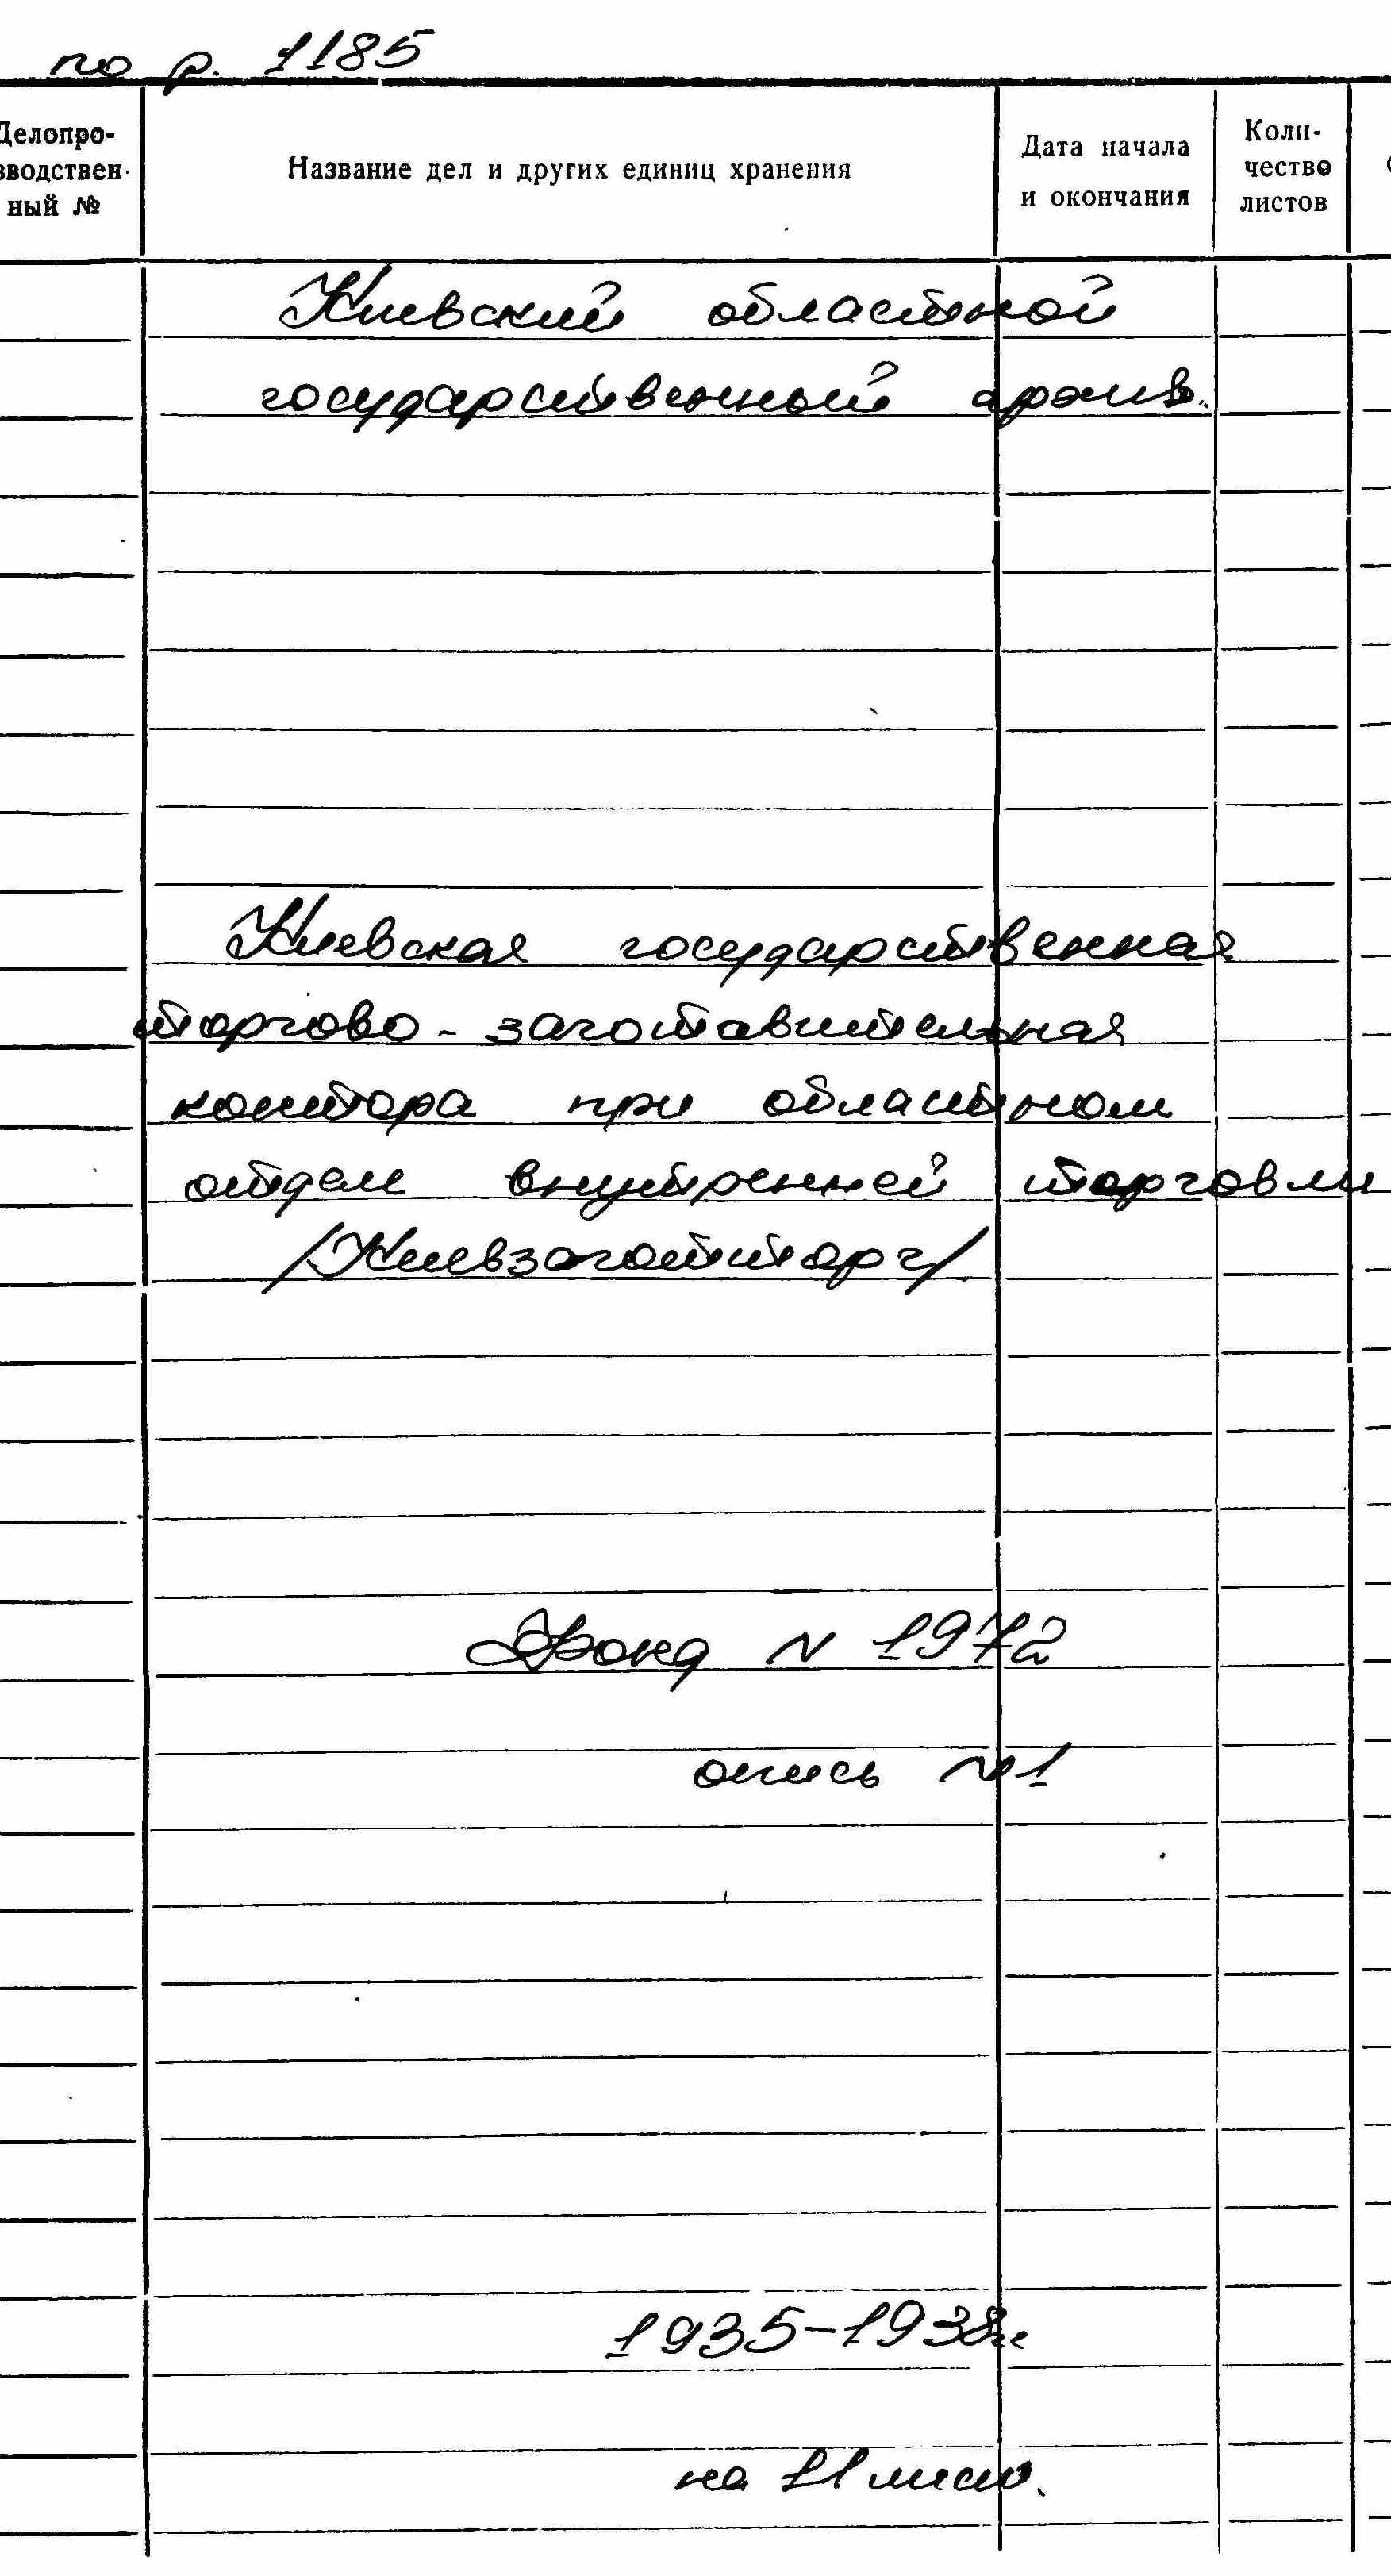 по р. 1185
Делопро-
зводствен-
ный №
Название дел и других единиц хранения
Дата начала
и окончания
Коли-
чество
листов
Киевский областной
государственный архив.
Киевская государственная
торгово-заготавительная
контора при областном
отделе внутренней торговли
/Киевзаготторг/
Фонд N 1972
опись №1
1935-1938гг
на 11 лист.